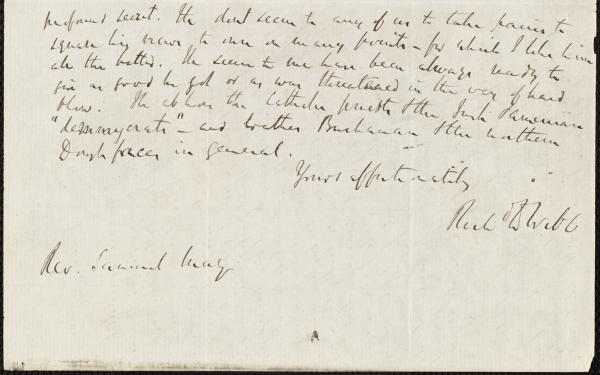 profound secret. He don't seem to any of us to take pains to
square his views to own on many points – for which I like him
all the better. He seems to me have been always ready to
give as good he got or as was threatened in the way of hard
blow. He abhors the Catholic priests & the Irish American
"demmycrats" – and loathes Buchanan & the northern
Dough faces in general.
Yours affectionately
Rich D Webb
Rev. Samuel May